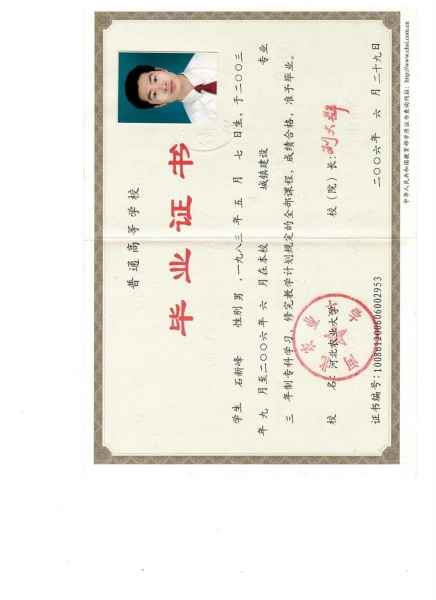 普通高等学校
毕业证书
学生 石新峰 性别 男，一九八三年 五 月 七 日生，于二〇〇三
年 九 月至二〇〇六年 六 月在本校 城镇建设 专业
三 年制专科学习，修完教学计划规定的全部课程，成绩合格，准予毕业。
校 名：河北农业大学 校（院）长：
证书编号：100861200606002953 二〇〇六年 六 月二十九日
中华人民共和国教育部学历证书查询网址：http://www.chsi.com.cn